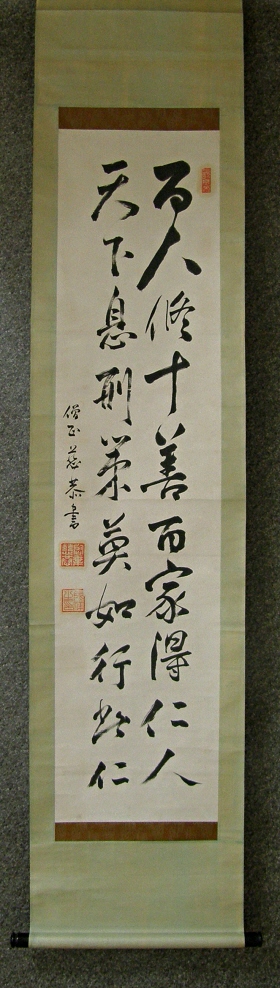 百人修十善百家得仁人
天下息刑莫如行此仁
僧正慈恭書